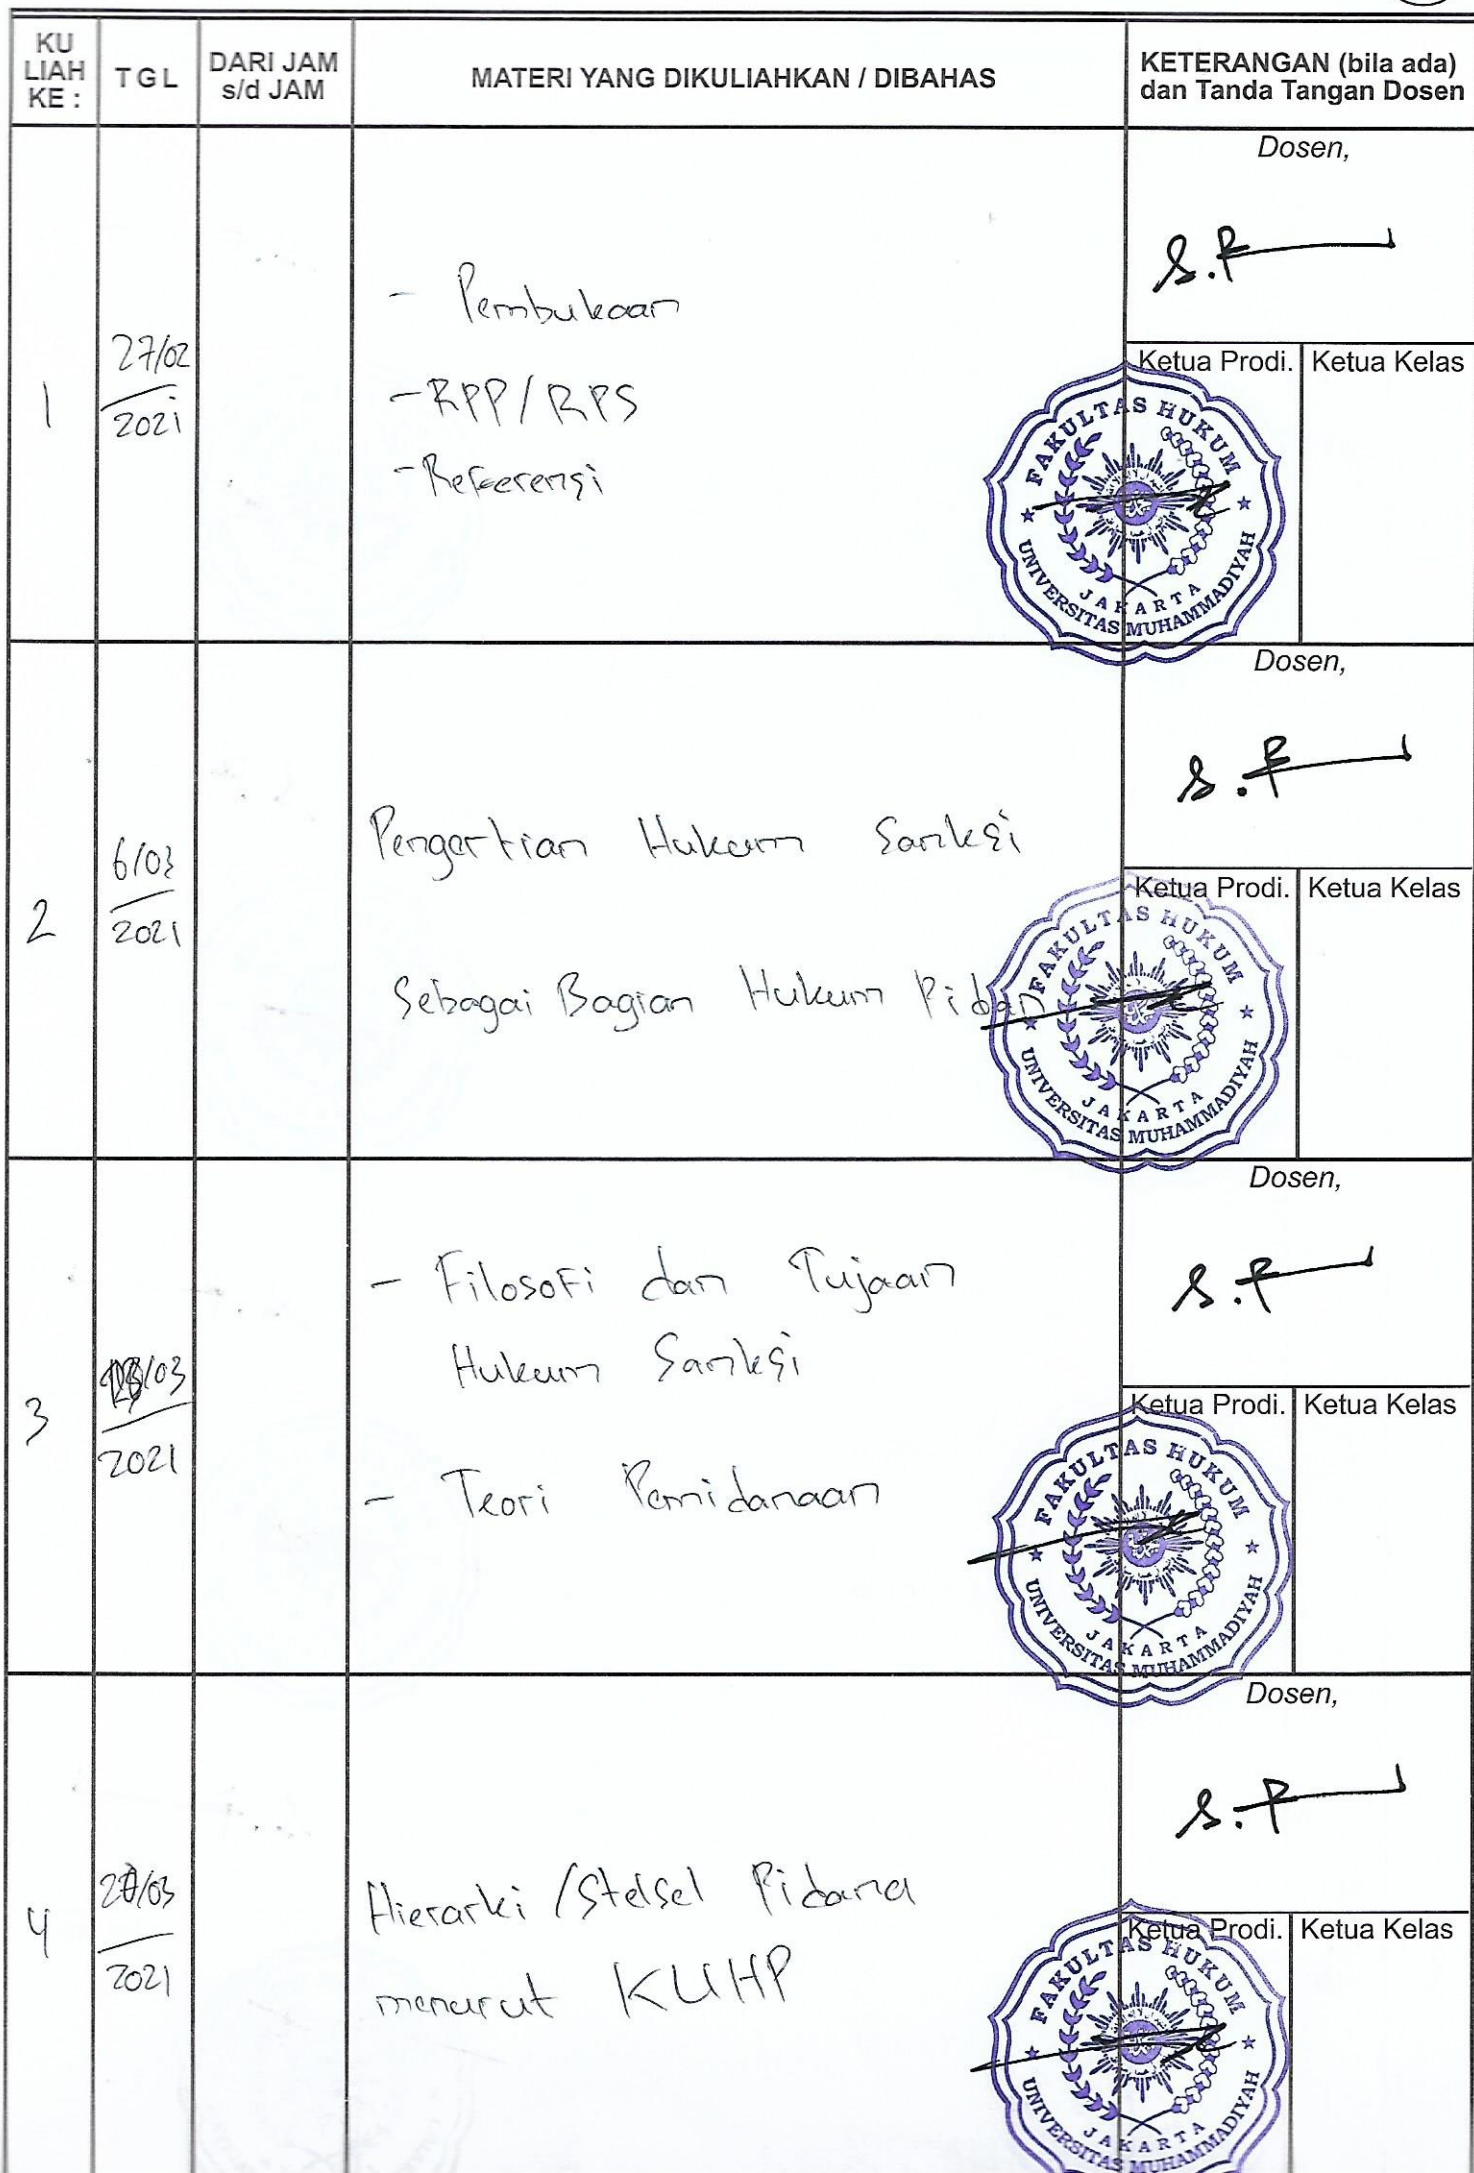 KU
LIAH
KE :
TGL
DARI JAM
s/d JAM
MATERI YANG DIKULIAHKAN / DIBAHAS
KETERANGAN (bila ada)
dan Tanda Tangan Dosen
1
27/02
2021
- Pembukaan
- RPP/RPS
- Referensi
Dosen,
S.F
Ketua Prodi.
Ketua Kelas
FAKULTAS HUKUM
JAKARTA
UNIVERSITAS MUHAMMADIYAH
2
6/03
2021
Pengertian Hukum Sanksi
Sebagai Bagian Hukum Pidan
Dosen,
S.F
Ketua Prodi.
Ketua Kelas
FAKULTAS HUKUM
JAKARTA
UNIVERSITAS MUHAMMADIYAH
3
/03
2021
- Filosofi dan Tujuan
Hukum Sanksi
- Teori Pemidanaan
Dosen,
S.F
Ketua Prodi.
Ketua Kelas
FAKULTAS HUKUM
JAKARTA
UNIVERSITAS MUHAMMADIYAH
4
/03
2021
Hierarki / Stelsel Pidana
menurut KUHP
Dosen,
S.F
Ketua Prodi.
Ketua Kelas
FAKULTAS HUKUM
JAKARTA
UNIVERSITAS MUHAMMADIYAH